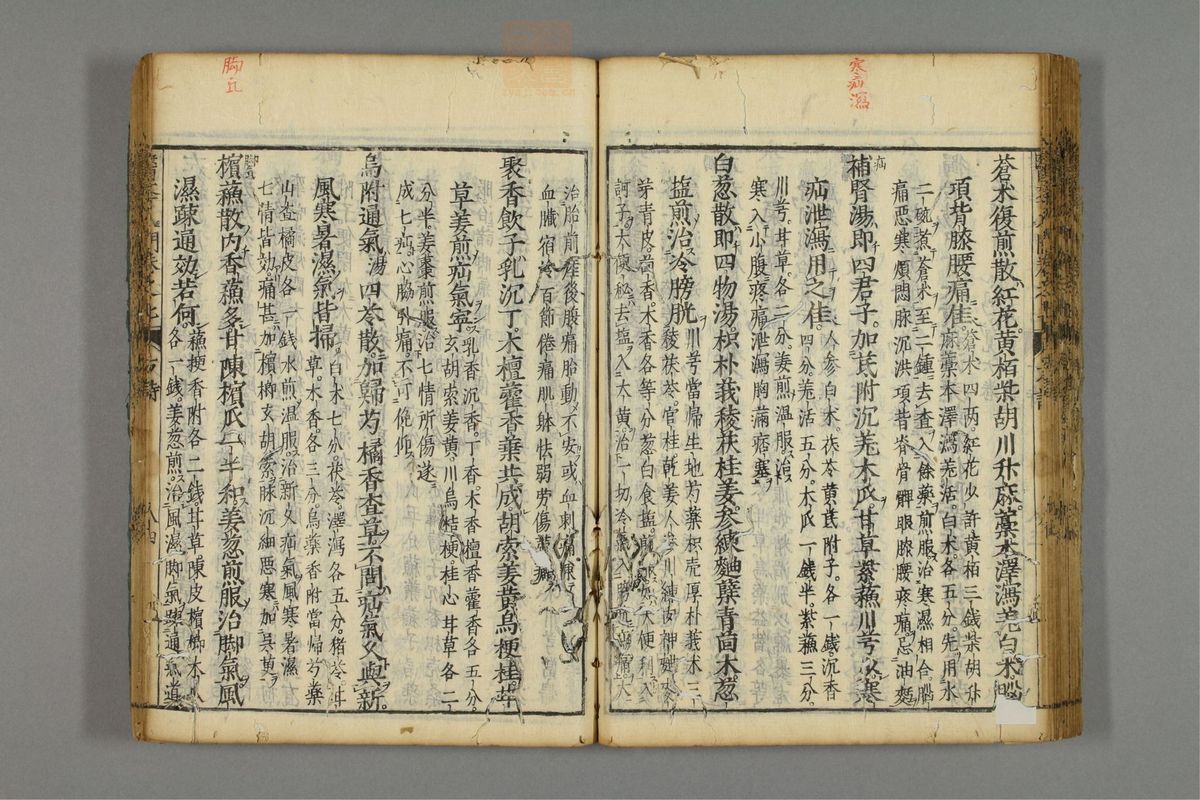 寒疝瀉
蒼朮復煎散紅花黃栢柴胡川升麻藁本澤瀉羌白朮腦
項背膝腰痛佳蒼朮四兩紅花少許黃栢三錢柴胡升
麻藁本澤瀉羌活白朮各五分先用水
二碗煮蒼朮至二鍾去査入餘藥煎服治寒濕相合腦
痛惡寒煩悶脉沉洪項背脊骨髀眼膝腰疼痛忌油麵
補腎湯即四君子加芪附沉羌木瓜甘草紫蘓川芎以寒
疝
疝泄瀉用之佳人參白朮茯苓黃芪附子各一錢沉香
四分羌活五分木瓜一錢半紫蘓三分
川芎甘草各二分姜煎温服治
寒入小腹疼痛泄瀉胸滿痞塞
白葱散即四物湯枳朴莪稜茯桂姜參練麯蘗青茴木葱
塩煎治冷膀胱川芎當歸生地芍藥枳壳厚朴莪朮三
稜茯苓官桂乾姜人參川練肉神麯麥
芽青皮茴香木香各等分葱白食塩煎服大便利入
訶子大便秘去塩入大黃治一切冷氣入膀胱疝痛大
治胎前産後腹痛胎動不安或血刺痛
血臟宿冷百節倦痛肌躰怯弱勞傷
聚香飲子乳沉丁木檀藿香葉共成胡索姜黃烏梗桂草
草姜煎疝氣寧乳香沉香丁香木香檀香藿香各五分
玄胡索姜黃川烏桔梗桂心甘草各二
分半姜棗煎服治七情所傷遂
成七疝心脇引痛不可俛仰
烏附通氣湯四苓散加歸芍橘香査草不問疝氣久與新
風寒暑濕氣皆掃白朮七分茯苓澤瀉各五分猪苓甘
草木香各三分烏藥香附當歸芍藥
山査橘皮各一錢水煎温服治新久疝氣風寒暑濕
七情皆効痛甚加檳榔玄胡索脉沉細惡寒加吳萸
脚氣
檳蘓散内香蘓多甘陳檳瓜一半和姜葱煎服治脚氣風
濕疎通効若何蘓梗香附各二錢甘草陳皮檳榔木瓜
各一錢姜葱煎治風濕脚氣疎通氣道